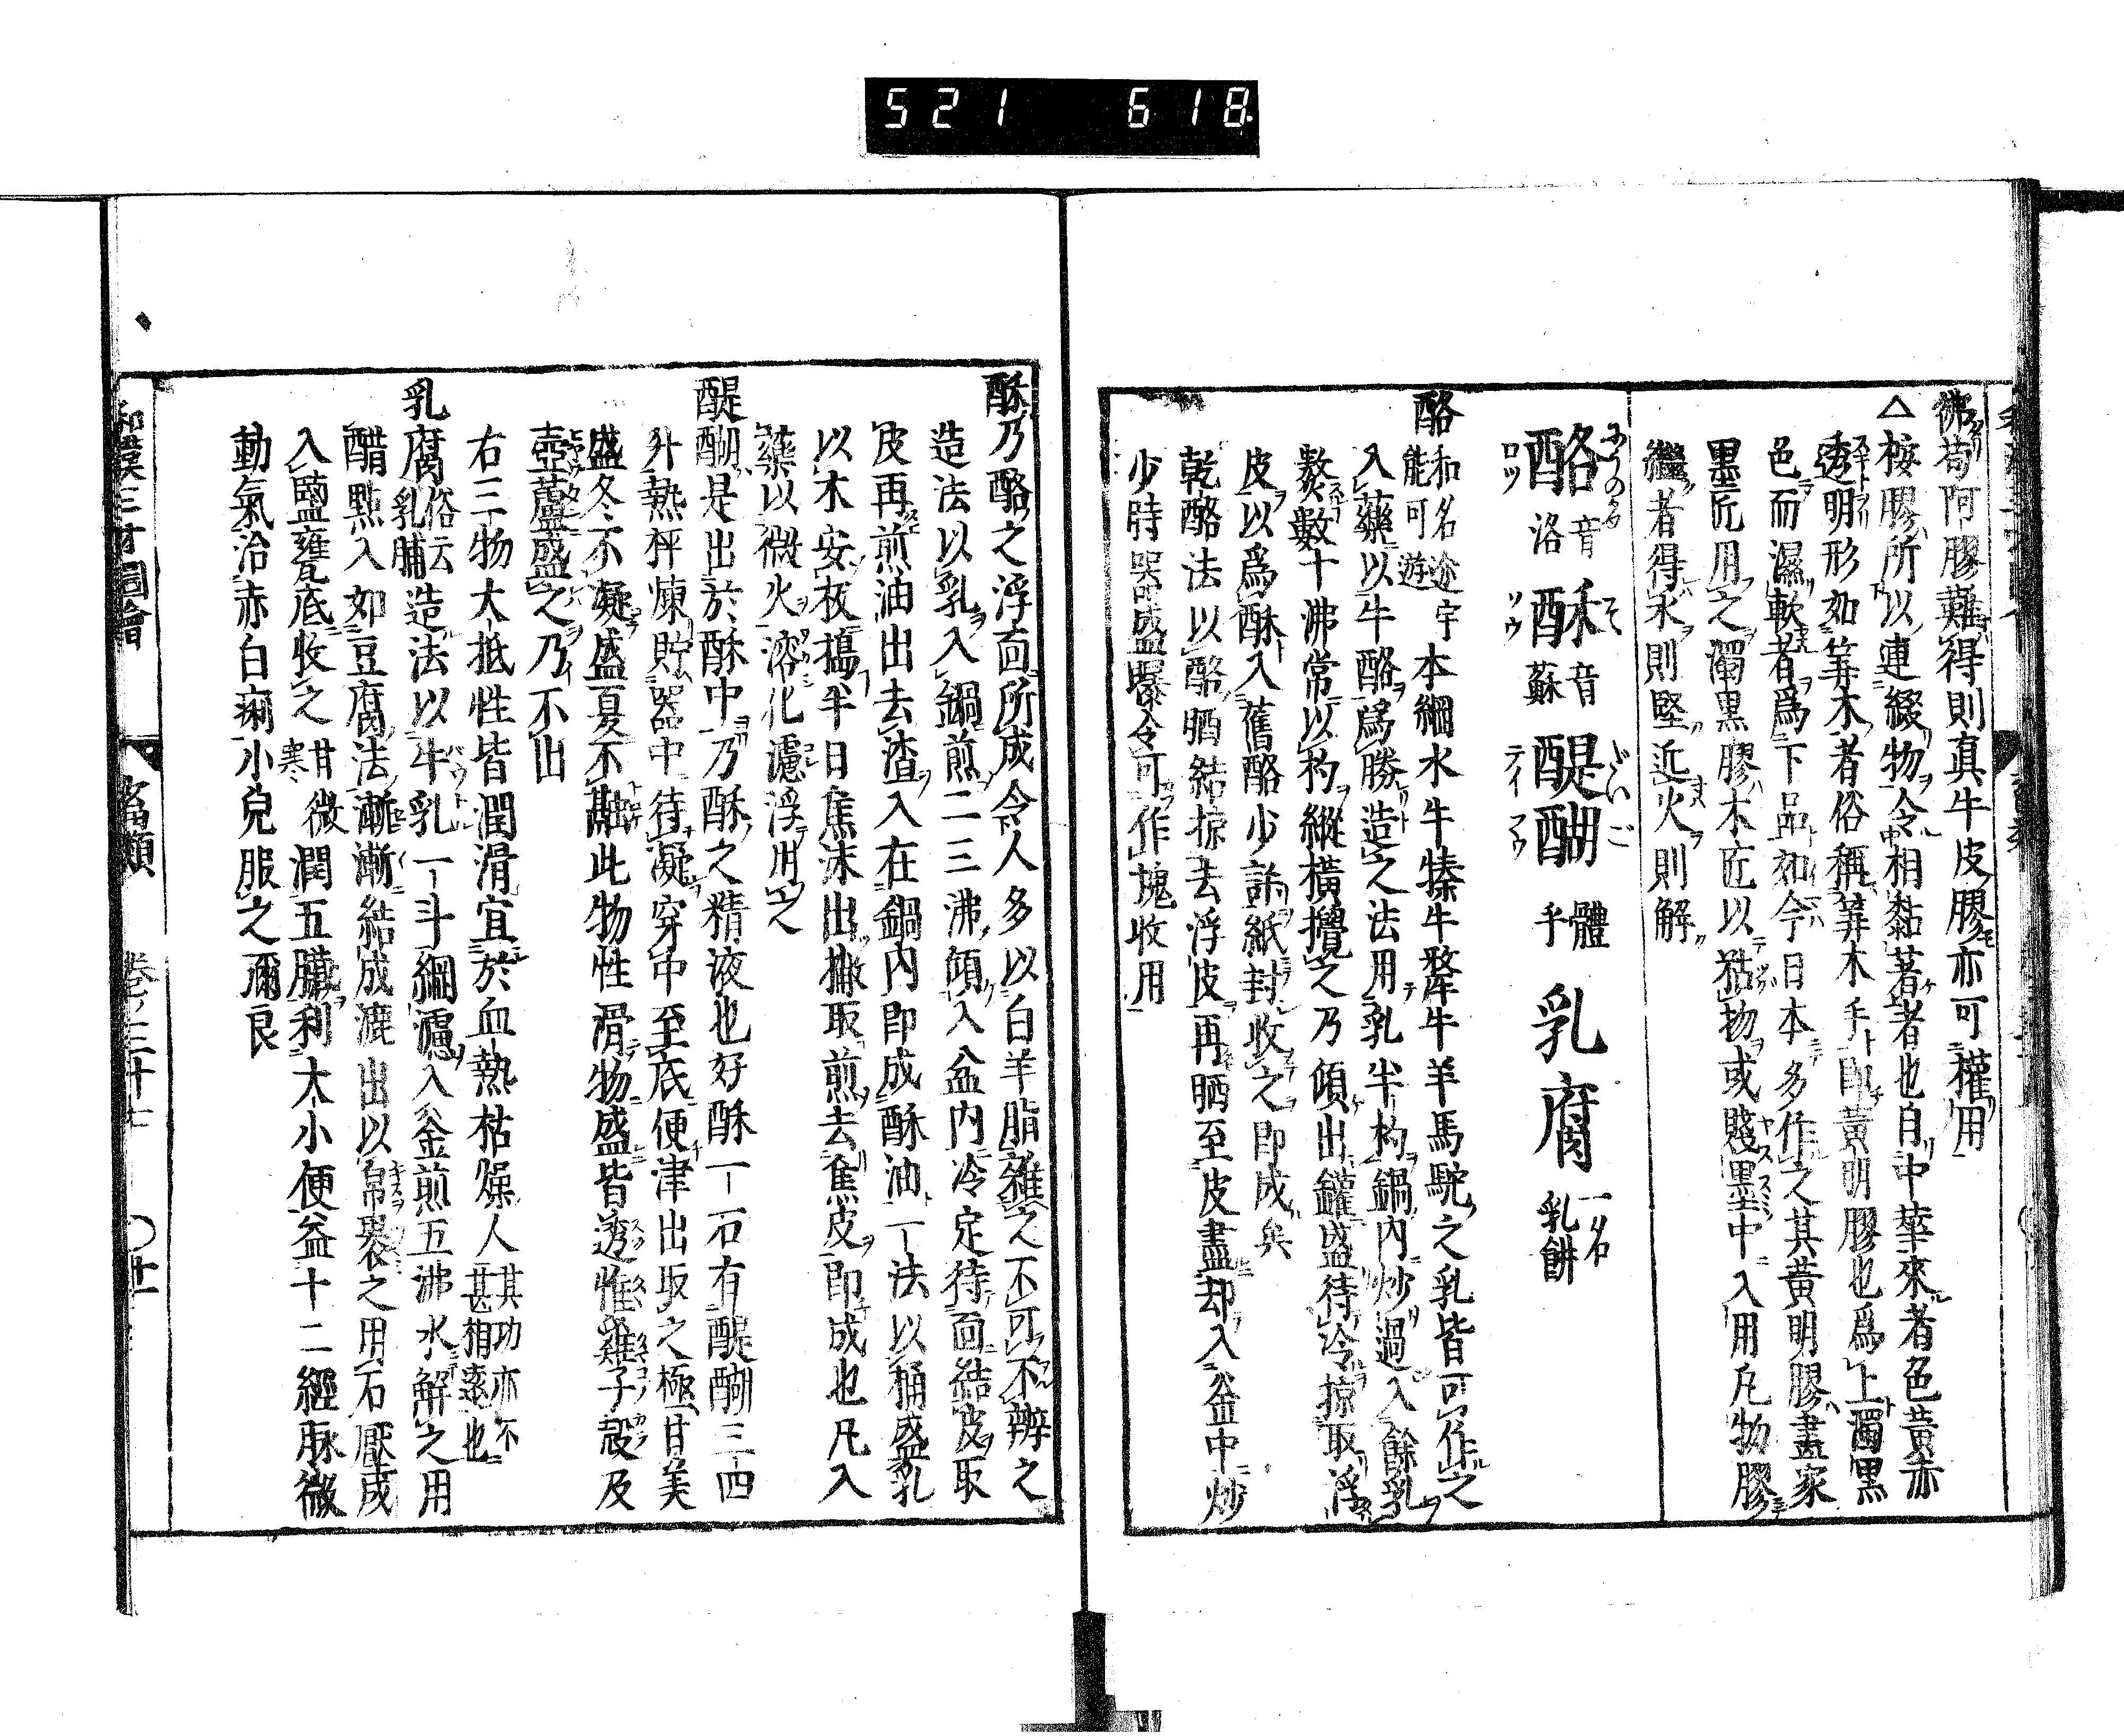 521 618
彿苟阿膠難得則真牛皮膠亦可權用
△桉膠所以連綴物令相黏著者也自中華來者色黄赤
透明形如筭木者俗稱筭木手即黄明膠也爲上濁黒
色而濕軟者爲下品如今日本多作之其黄明膠畫家
墨匠用之濁黒膠木匠以粘物或賤墨中入用凡物膠
繼者得水則堅近火則解
酪 音洛 酥 音蘇 醍醐 體乎 乳腐 一名乳餅
酪 和名途宇能可遊 本綱水牛㹀牛犛牛羊馬駝之乳皆可作之
入藥以牛酪爲勝造之法用乳半杓鍋内炒過入餘乳
熬數十沸常以杓縱橫攪之乃傾出罐盛待冷掠取浮
皮以爲酥入舊酪少許紙封收之即成矣
乾酪法以酪晒結掠去浮皮再晒至皮盡却入釡中炒
少時器盛曝令可作塊收用
酥乃酪之浮面所成令人多以白羊脂雜之不可不辨之
造法以乳入鍋煎二三沸傾入盆内冷定待面結皮取
皮再煎油出去渣入在鍋内即成酥油一法以桶盛乳
以木安板搗半日焦沫出撇取煎去焦皮即成也凡入
藥以微火溶化濾浮用之
醍醐是出於酥中乃酥之精液也好酥一石有醍醐三四
升熱抨煉貯器中待凝穿中至底便津出取之極甘美
盛冬不凝盛夏不融此物性滑物盛皆透惟雞子殻及
壺蘆盛之乃不出
右三物大抵性皆潤滑宜於血熱枯燥人 其功亦不甚相遠也
乳腐 俗云乳脯 造法以牛乳一斗綱濾入釜煎五沸水解之用
醋點入如豆腐法漸漸結成漉出以帛裹之用石壓成
入鹽甕底收之 甘微寒 潤五臟利大小便益十二經脉微
動氣治赤白痢小兒服之彌良
和漢三才圖會 畜類 卷ノ三十七 〇廿一